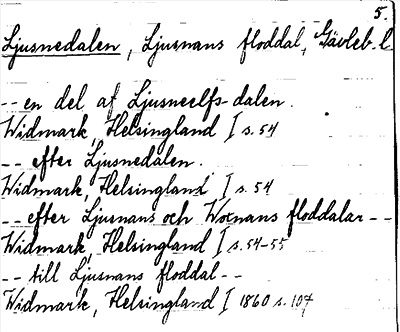 5.
Ljusnedalen, Ljusnans floddal, Gävleb. l.
-- en del af Ljusneelfs-dalen.
Widmark, Helsingland I s. 54
-- efter Ljusnedalen.
Widmark, Helsingland I s. 54
-- efter Ljusnans och Woxnans floddalar --
Widmark, Helsingland I s. 54-55
-- till Ljusnans floddal --
Widmark, Helsingland I 1860 s. 107